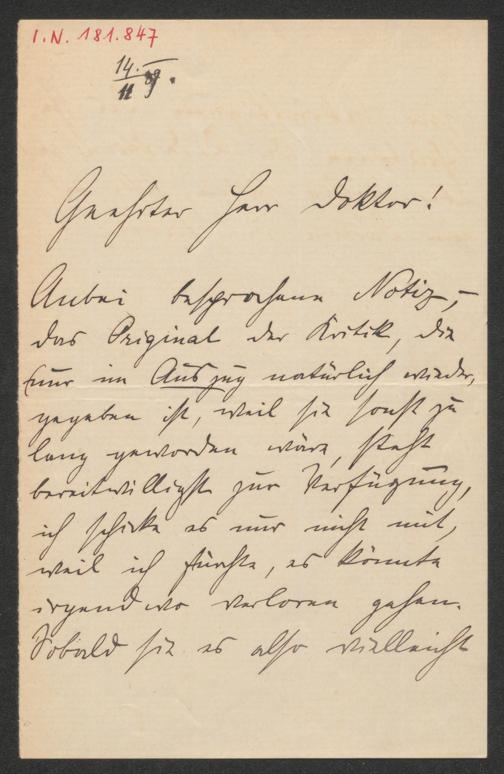 I.N. 181.847
14.
11 89.
Geehrter Herr Doktor!
Anbei besprochene Notiz, –
das Original der Kritik, die
(nur im Auszug natürlich wieder,
gegeben ist, weil sie sonst zu
lang geworden wäre, steht
bereitwilligst zur Verfügung,
ich schicke es nur nicht mit,
weil ich fürchte, es könnte
irgendwo verloren gehen.
Sobald sie es also vielleicht